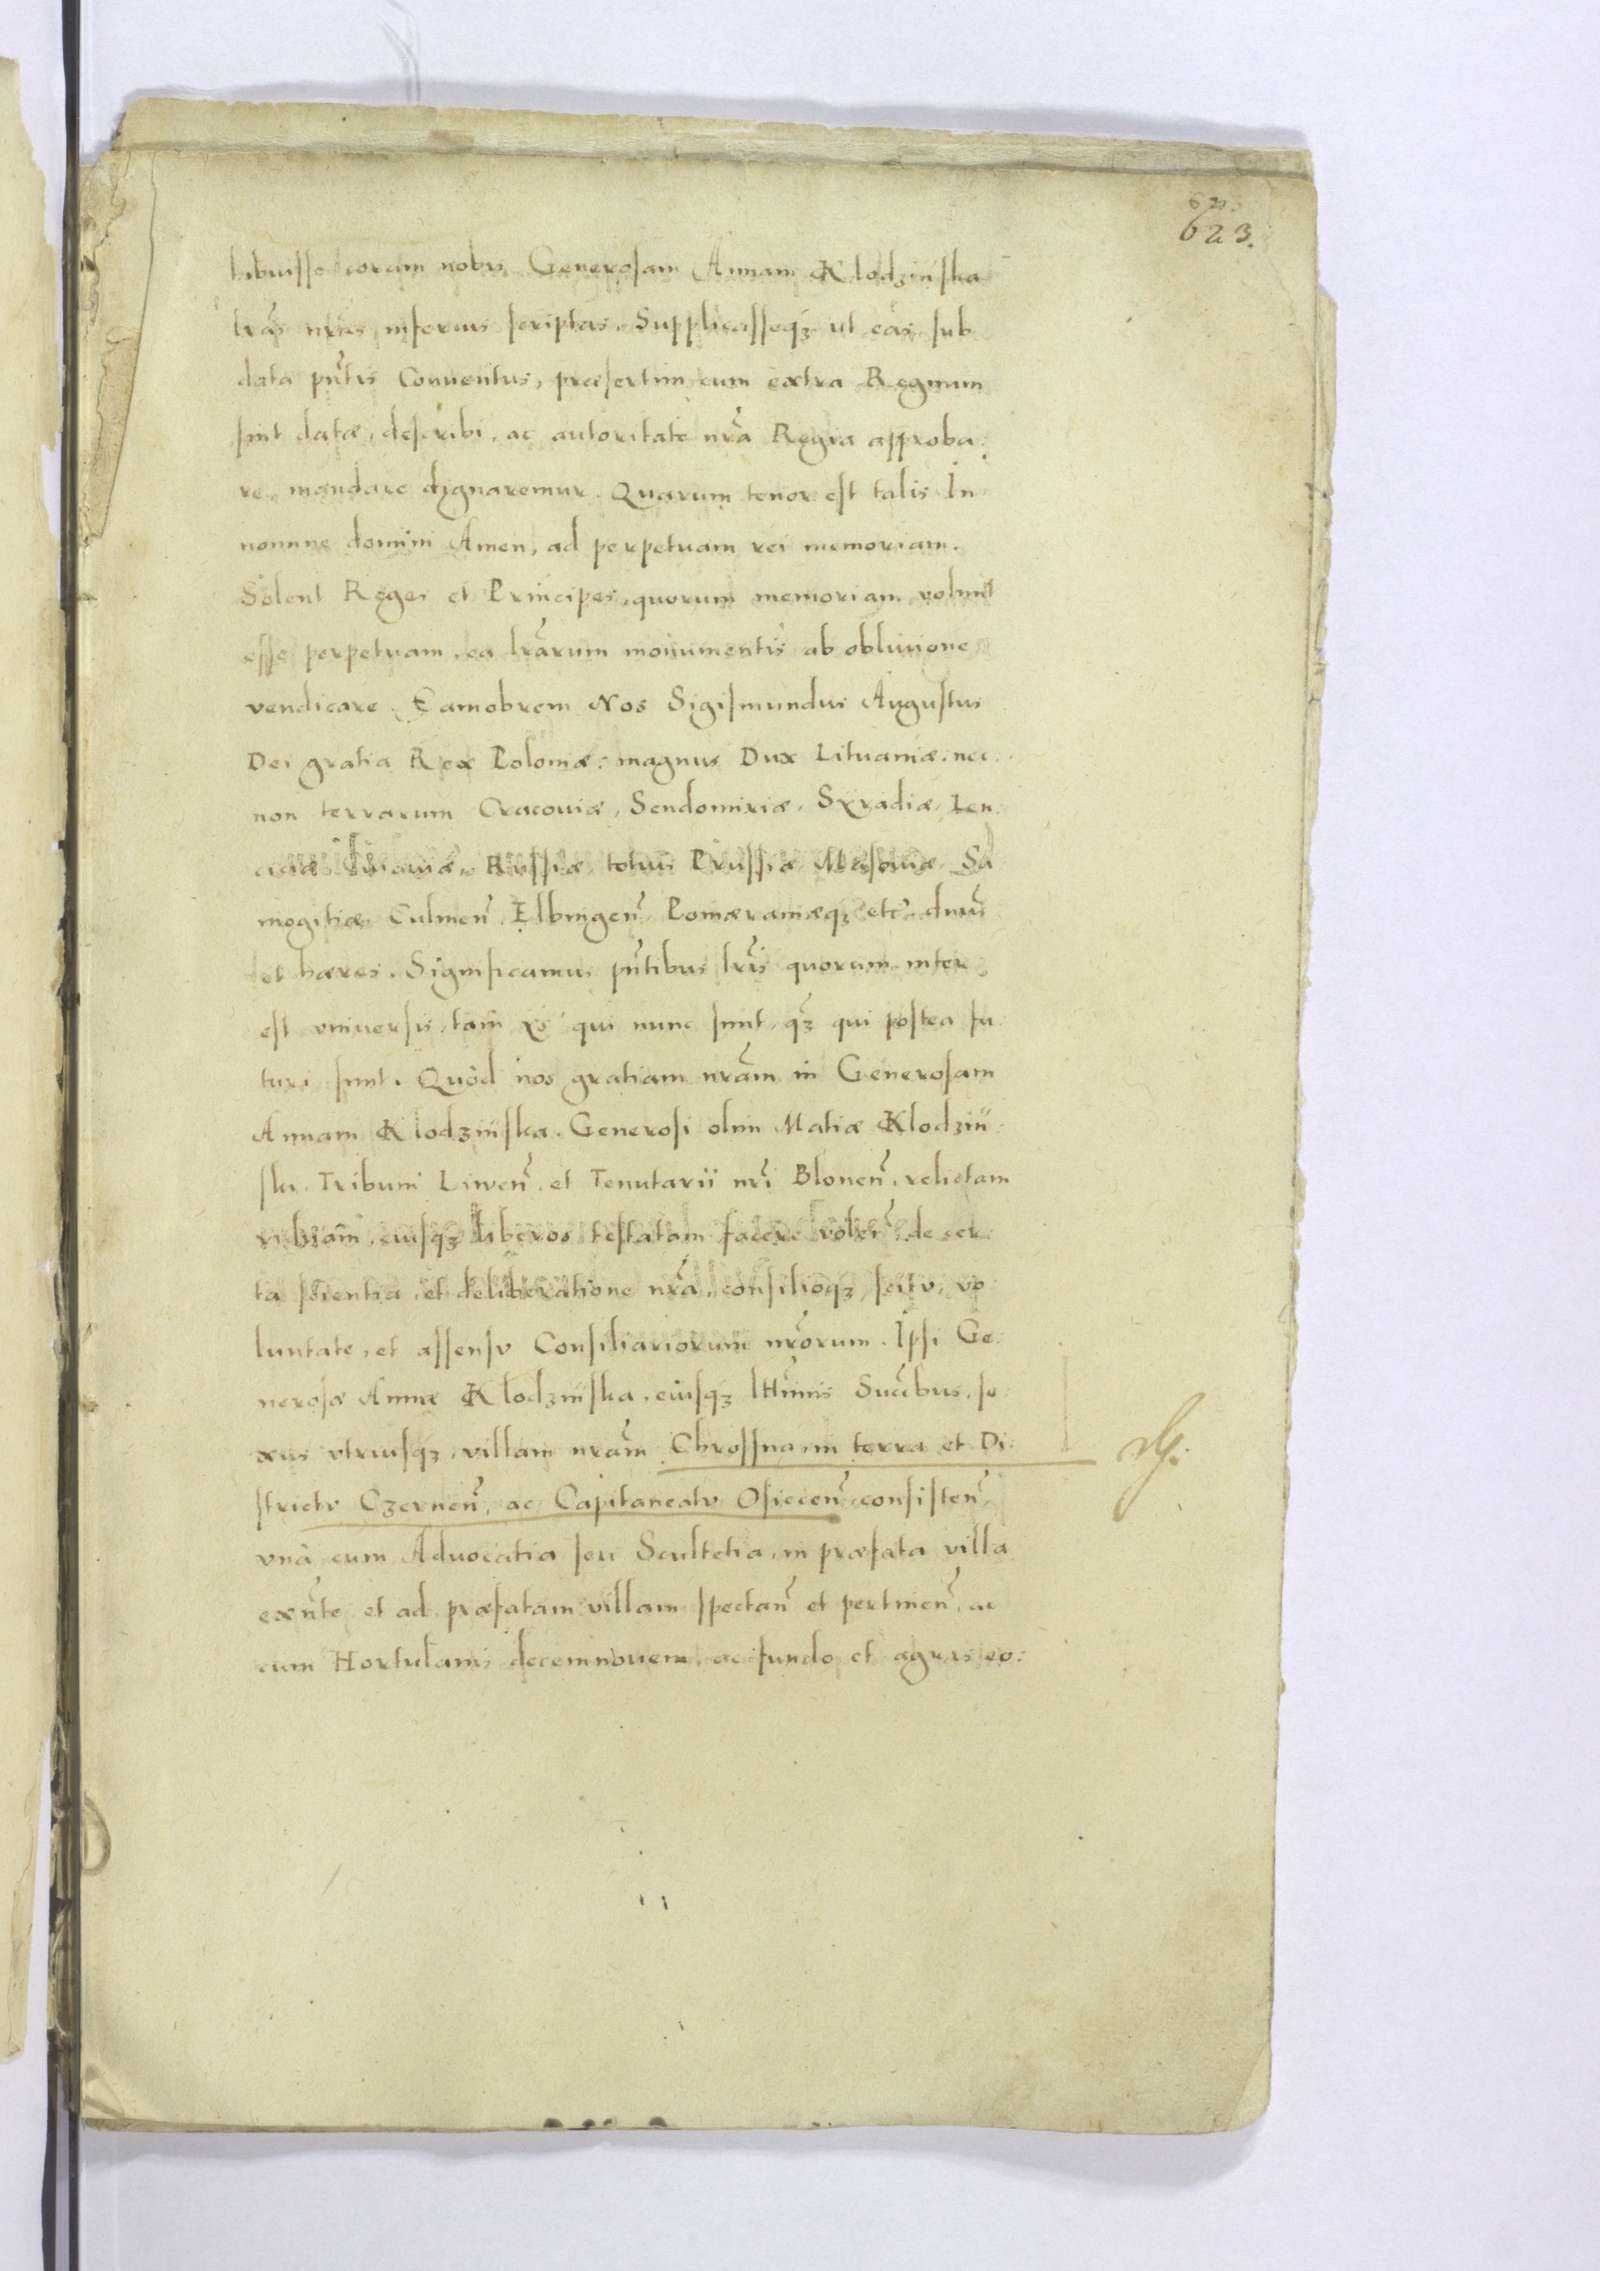 623.
hibuisse coram nobis Generosam Annam Klodzinska
lrãs nrãs inferius scriptas. Supplicasseqꝫ ut eas sub
data pñtis Conventus, præsertim cum extra Regnum
sint datæ, describi, ac autoritate nrã Regia approba:
re, mandare dignaremur. Quarum tenor est talis. In
nomine domini Amen, ad perpetuam rei memoriam.
Solent Reges et Principes, quorum memoriam volunt
esse perpetuam, ea lrãrum monumentis ab oblivione
vendicare. Eamobrem Nos Sigismundus Augustus
Dei gratia Rex Poloniæ: magnus Dux Lituaniæ. nec
non terrarum Cracoviæ, Sendomiriæ, Syradiæ, Len
ciciæ Cuiaviæ, Russiæ totius Prussiæ Masoviæ Sa
mogitiæ Culmeñ. Elbingeñ. Pomæraniæqꝫ etc. dnũs
et hæres. Significamus pñtibus lrĩs quorum inter
est vniversis, tam ys qui nunc sunt, qꝫ qui postea fu
turi sunt. Quòd nos gratiam nrãm in Generosam
Annam Klodzinska. Generosi olim Matiæ Klodzin
ski. Tribuni Liweñ. et Tenutarii nrĩ Bloneñ. relictam
eiusqꝫ liberos testatam facere de cer
ta scientia, et deliberatione nrã, consilioqꝫ, scitu, vo
luntate, et assensu Consiliariorum nrõrum. Ipsi Ge
nerosæ Annæ Klodzinska, eiusqꝫ lttimis Succibus, se
xus vtriusqꝫ, villam nrãm Chrossna, in terra et Di
strictu Czerneñ, ac Capitaneatu Osieceñ consisteñ,
vnà cum Advocatia seu Scultetia, in præfata villa
exñte et ad præfatam villam spectañ et pertineñ, ac
cum Hortulanis decemnovem, ac fundo et agris eo: